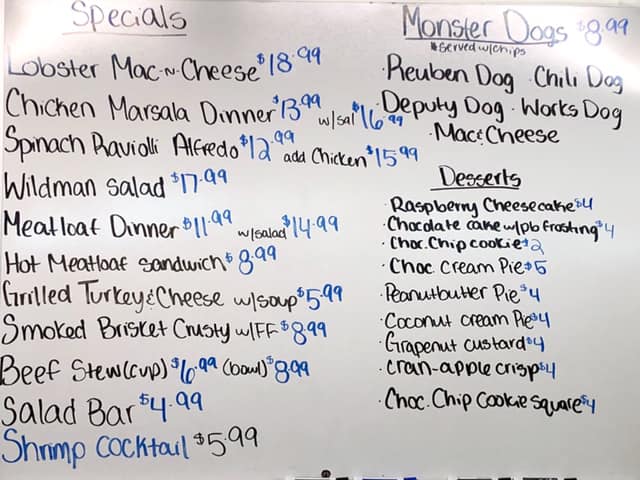 Specials
Lobster Mac-n-Cheese $18.99
Chicken Marsala Dinner $13.99 w/sal $16.99
Spinach Raviolli Alfredo $12.99 add Chicken $15.99
Wildman Salad $17.99
Meatloaf Dinner $11.99 w/salad $14.99
Hot Meatloaf sandwich $8.99
Grilled Turkey & Cheese w/soup $5.99
Smoked Brisket Crusty w/FF $8.99
Beef Stew (cup) $6.99 (bowl) $8.99
Salad Bar $4.99
Shrimp Cocktail $5.99
Monster Dogs $8.99
*served w/chips
·Reuben Dog ·Chili Dog
·Deputy Dog ·Works Dog
·Mac & Cheese
Desserts
·Raspberry Cheesecake $4
·Chocolate cake w/pb frosting $4
·Choc. Chip cookie $2
·Choc. Cream Pie $5
·Peanutbutter Pie $4
·Coconut cream Pie $4
·Grapenut custard $4
·cran-apple crisp $4
·Choc. Chip Cookie Square $4